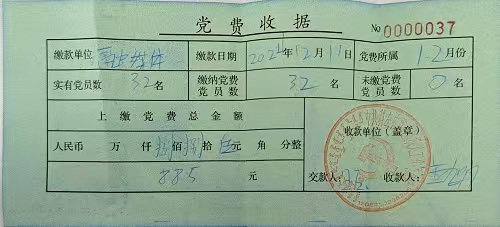 党费收据
No 0000037
缴款单位 缴款日期 2021年12月17日 党费所属 12月份
实有党员数 32名 缴纳党费党员数 32名 未缴党费党员数 0名
上缴党费总金额
收款单位(盖章)
人民币 万 仟 捌佰捌拾伍元 角 分整
885 元
交款人: 收款人: